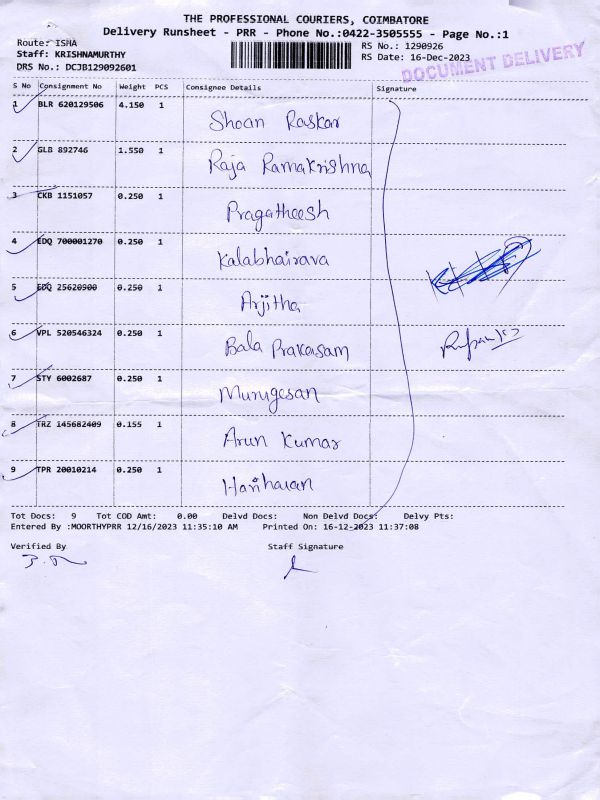 THE PROFESSIONAL COURIERS, COIMBATORE
Delivery Runsheet - PRR - Phone No.:0422-3505555 - Page No.:1
Route: ISHA
Staff: KRISHNAMURTHY
DRS No.: DCJB129092601
RS No.: 1290926
RS Date: 16-Dec-2023
DOCUMENT DELIVERY
S No Consignment No Weight PCS Consignee Details Signature
1 BLR 620129506 4.150 1 Shoan Raskar
2 GLB 892746 1.550 1 Raja Ramakrishna
3 CKB 1151057 0.250 1 Pragatheesh
4 EDQ 700001270 0.250 1 Kalabhairava
5 EDQ 25620900 0.250 1 Arjitha
6 VPL 520546324 0.250 1 Bala Prakasam
7 STY 6002687 0.250 1 Murugesan
8 TRZ 145682409 0.155 1 Arun Kumar
9 TPR 20010214 0.250 1 Hariharan
Tot Docs: 9 Tot COD Amt: 0.00 Delvd Docs: Non Delvd Docs: Delvy Pts:
Entered By :MOORTHYPRR 12/16/2023 11:35:10 AM Printed On: 16-12-2023 11:37:08
Verified By Staff Signature